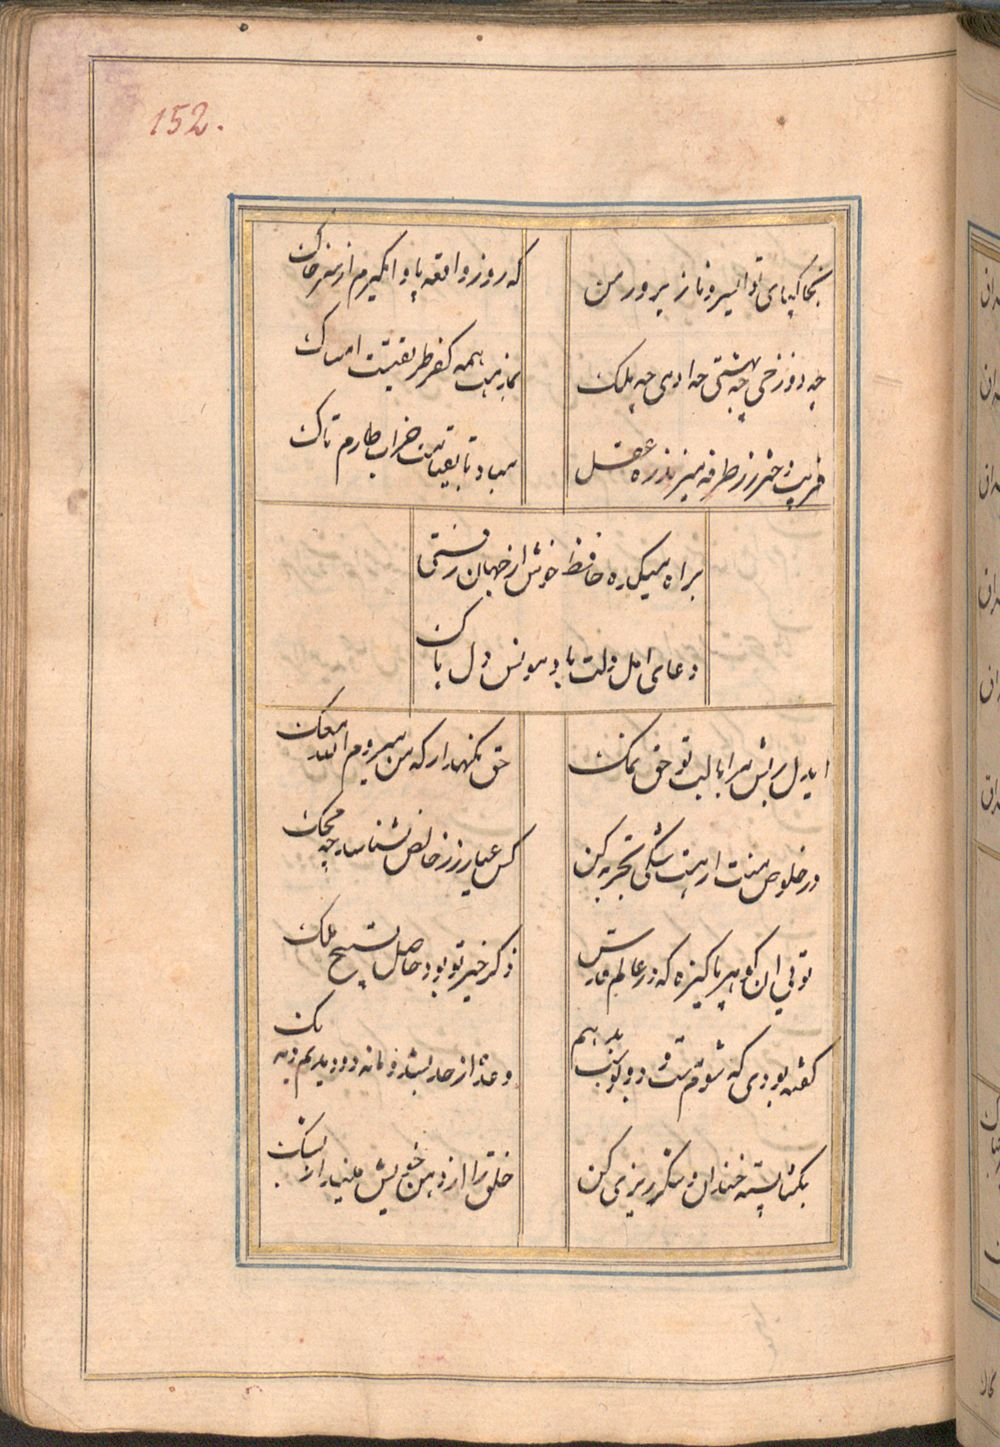 152.
بخاکپای تو ای سرو ناز پرور من
که روز واقعه پا وا مگیرم از سر خاک
چه دوزخی چه بهشتی چه ادمی چه ملک
بمذهب همه کفر طریقتست امساک
فریب دختر رز طرفه میزند ره عقل
مباد تا بقیامت خراب طارم تاک
براه میکده حافظ خوش از جهان رفتی
دعای اهل دلت باد مونس دل پاک
ایدل ریش مرا با لب تو حق نمک
حق نکهدار که من میروم الله معک
در خلوص منت ار هست شکی تجربه کن
کس عیار زر خالص نشناسد چو محک
تویی ان کوهر پاکیزه که در عالم قدس
ذکر خیر تو بود حاصل تسبیح ملک
کفته بودی که شوم مست و دو بوست بدهم
وعده از حد بشد و ما نه دو دیدیم و نه یک
بکشا پسته خندان و شکر ریزی کن
خلق را از دهن خویش مینداز بشک